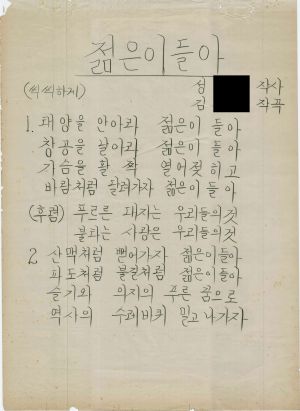 젊은이들아
(씩씩하게)
성 작사
김 작곡
1. 태양을 안아라 젊은이 들아
창공을 날아라 젊은이 들아
가슴을 활짝 열어젖히고
바람처럼 달려가자 젊은이 들아
(후렴) 푸르른 대지는 우리들의것
불타는 사랑은 우리들의것
2 산맥처럼 뻗어가자 젊은이들아
파도처럼 불길처럼 젊은이들아
슬기와 의지의 푸른 꿈으로
역사의 수레바퀴 밀고 나가자